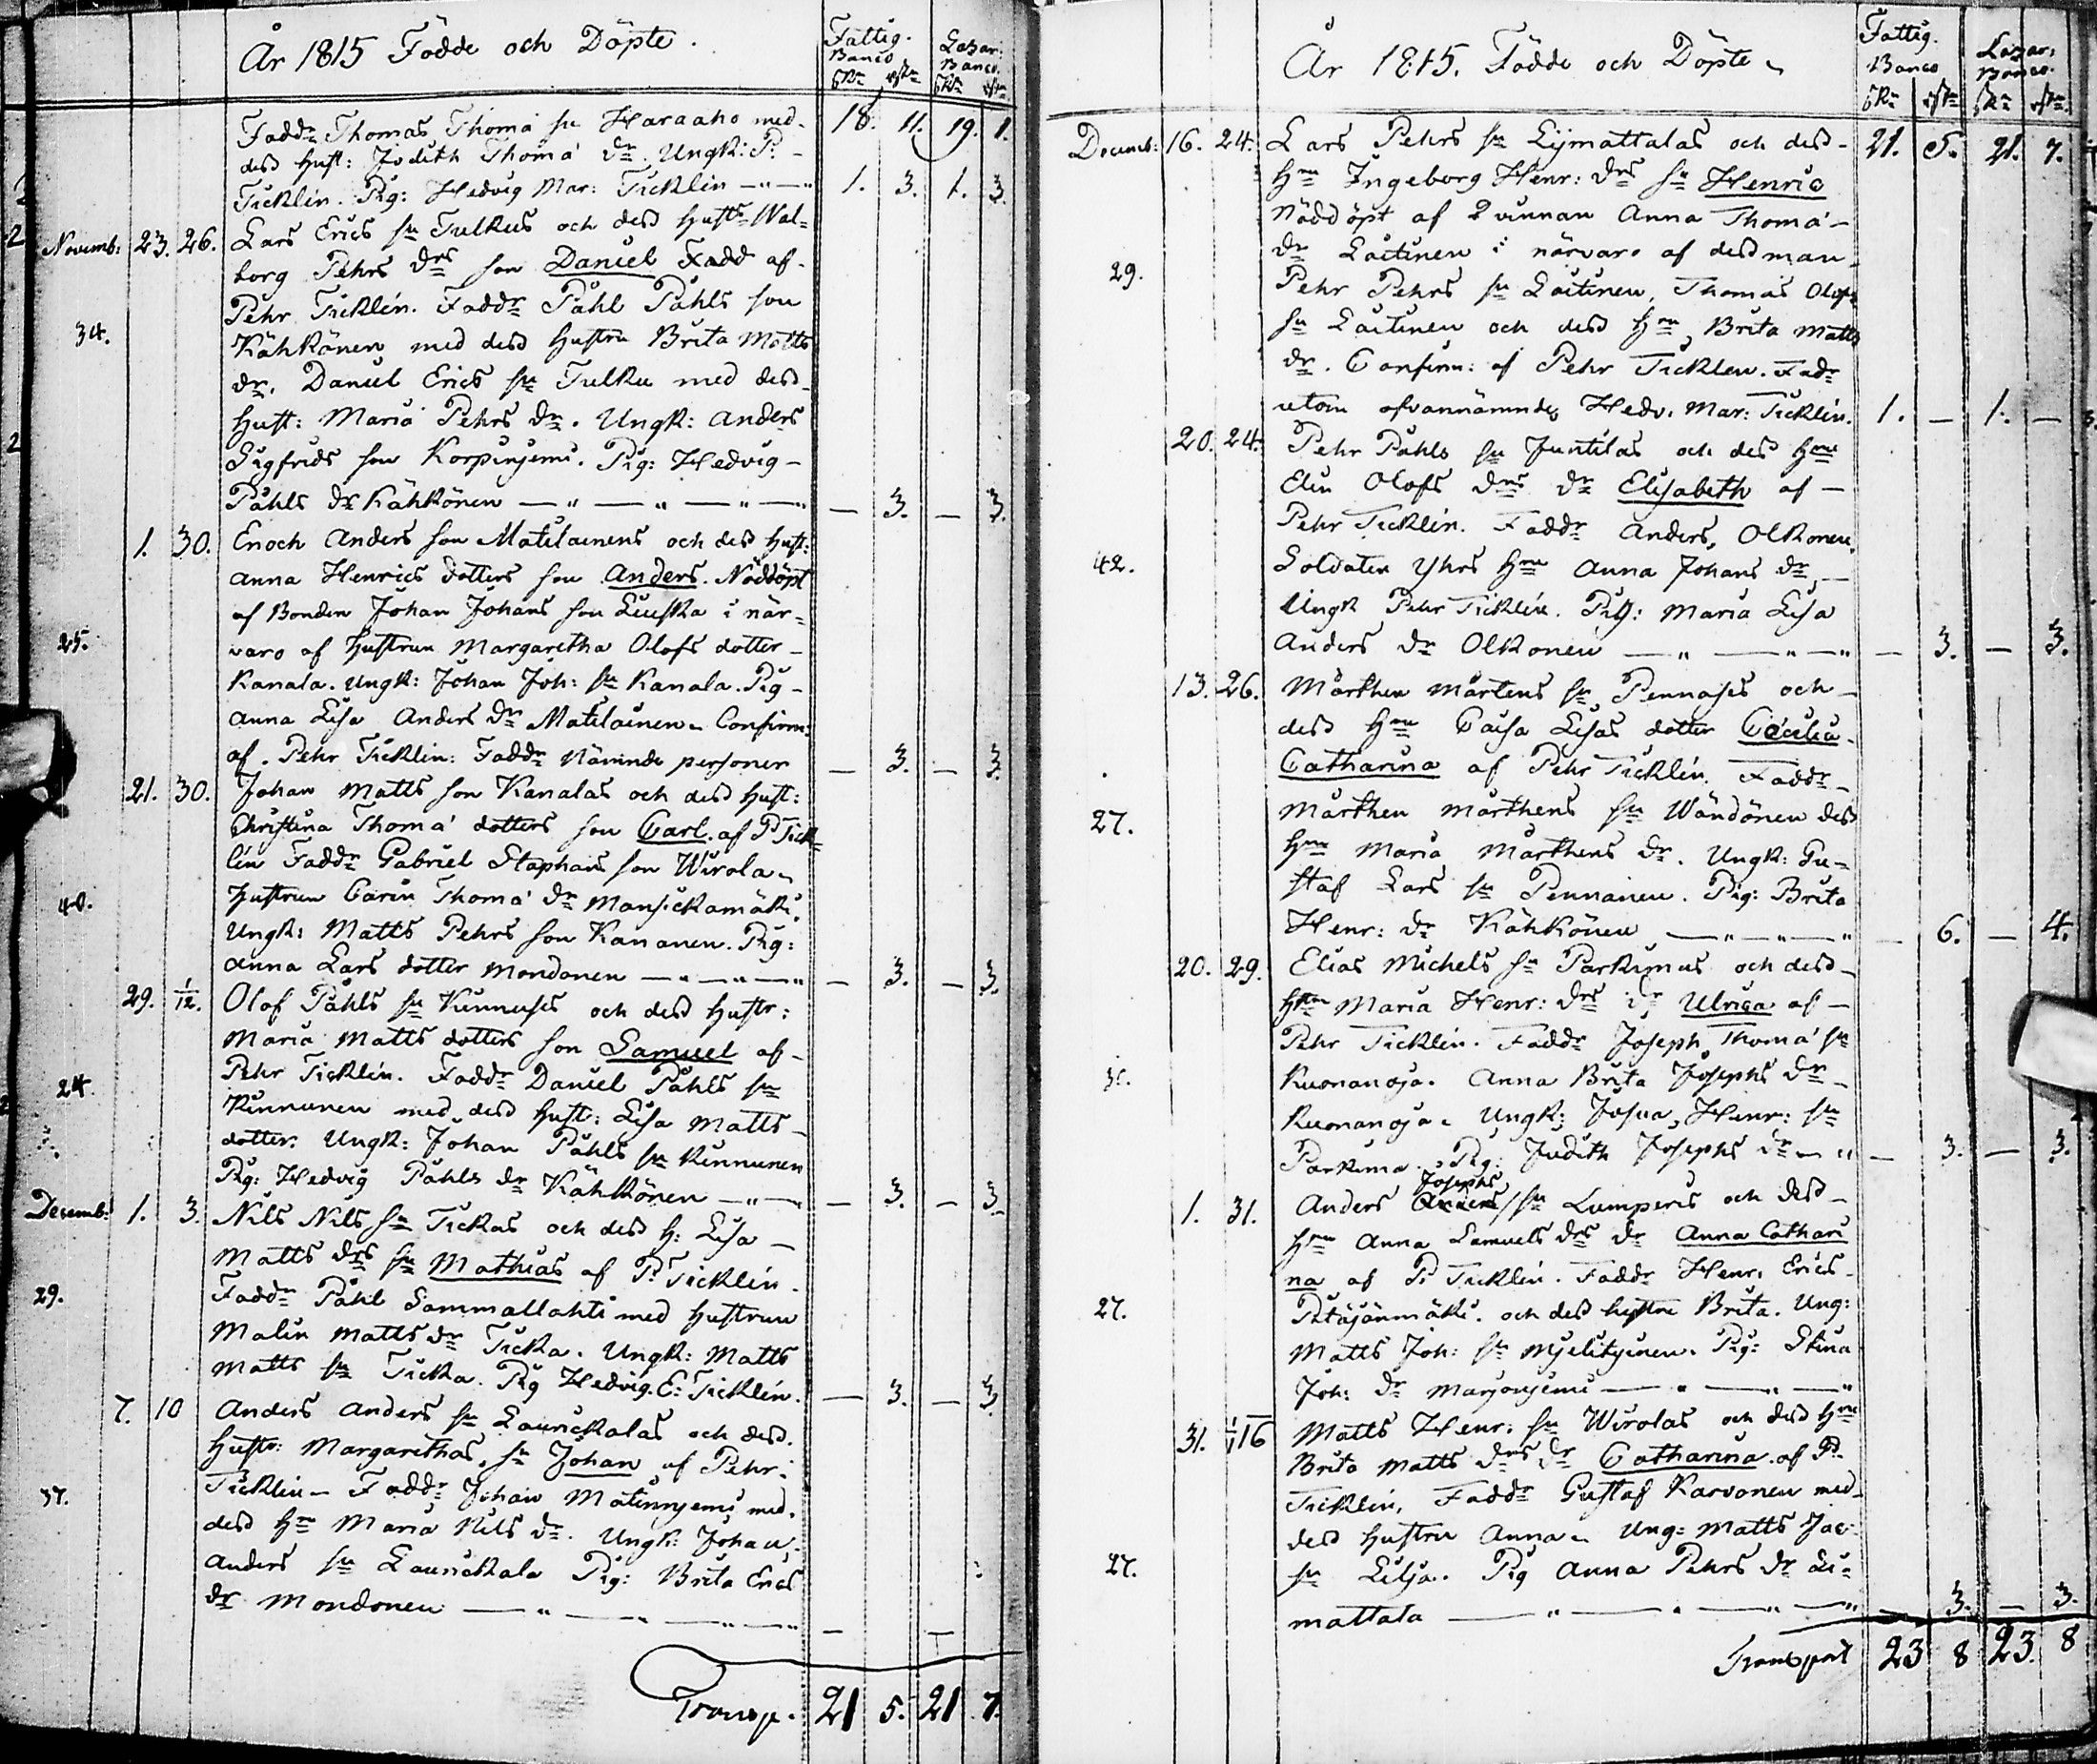 År 1815 Födde och Döpte.
Fattig. Banco Lazar: Banco.
Fadd: Thomas Thoma sn Haraaho med 18. 11. 19. 1.
dess Hust: Jodith Thoma dr. Ungk: P.
Ticklin. Pig: Hedvig Mar: Ticklin — " — " 1. 3. 1. 3.
Novemb: 23. 26. Lars Erics sn Tulkus och dess Hustr Wal=
borg Pehrs drs son Daniel Fadd af
Pehr Ticklin. Faddr Påhl Påhls son
34. Kähkönen med dess Hustru Brita Matts
dr. Daniel Erics sn Tulku med dess
Hust: Maria Pehrs dr. Ungk: Anders
Sigfrids son Korpinjemi. Pig: Hedvig
Påhls dr Kähkönen — " — " — " — " — 3. — 3.
1. 30. Enoch Anders son Matilainens och dess Hust:
Anna Henrics dotters son Anders. Nöddöpt
af Bonden Johan Johans son Liuska i när=
25. varo af Hustrun Margaretha Olofs dotter
Kanala. Ungk: Johan Joh: sn Kanala. Pig
Anna Lisa Anders dr Matilainen. Confirm:
af. Pehr Ticklin: Faddr Nämnde personer — 3. — 3.
21. 30. Johan Matts son Kanalas och dess Hust:
Christina Thoma dotters son Carl. af P Tick=
lin Faddr Gabriel Staphans son Wirola
40. Hustrun Carin Thoma dr Mansickamäki.
Ungk: Matts Pehrs son Kananen. Pig:
Anna Lars dotter Mondonen — " — " — " — 3. — 3.
29. 1/12. Olof Påhls sn Kinnuses och dess Hustr:
Maria Matts dotters son Samuel af
24. Pehr Ticklin. Faddr Daniel Påhls sn
Kinnunen med dess Hust: Lisa Matts
dotter. Ungk: Johan Påhls sn Kinnunen
Pig: Hedvig Påhls dr Kähkönen — " — — 3. — 3.
Decemb: 1. 3. Nils Nils sn Tickas och dess H: Lisa
Matts drs sn Mathias af P. Ticklin.
29. Faddr Påhl Sammallahti med Hustrun
Malin Matts dr Ticka. Ungk: Matts
Matts sn Ticka. Pig Hedvig. E: Ticklin. — 3. — 3.
7. 10 Anders Anders sn Laurickalas och dess
Hustr: Margarethas, sn Johan af Pehr
37. Ticklin — Faddr Johan Matinnjemi med
dess Hn Maria Nils dr. Ungk: Johan
Anders sn Laurickala Pig: Brita Erics
dr Mondonen — " — " — " — " —
Transp. 21 5. 21 7.
År 1815. Födde och Döpte
Fattig. Banco Lazar: Banco.
Decemb: 16. 24. Lars Pehrs sn Lijmattalas och dess 21. 5. 21. 7.
Hru Ingeborg Henr: drs sn Henric
nöddöpt af Qvinnan Anna Thoma
29. dr Laitinen i närvaro af dess man
Pehr Pehrs sn Laitinen, Thomas Olofs
sn Laitinen och dess Hru Brita Matts
dr. Confirm: af Pehr Ticklen. Fadr
utom ofvannämnde Hedv. Mar: Ticklin. 1. — 1. —
20. 24. Pehr Påhls sn Juntilas och des Hru
Elin Olofs drs dr Elisabeth af
Pehr Ticklin. Faddr Anders Olkonen
42. Soldaten Yhrs Hru Anna Johans dr
Ungk Pehr Ticklin. Pig: Maria Lisa
Anders dr Olkonen — " — " — " — 3. — 3.
13. 26. Mårthen Mårtens sn Pennases och
dess Hru Caisa Lisas dotter Cäcilia
Catharina af Pehr Ticklin. Faddr
27. Mårthen Mårthens sn Wändönen dess
Hru Maria Mårthens dr. Ungk: Gu=
staf Lars sn Pennanen. Pig: Brita
Henr: dr Kähkönen — " — " — " — 6. — 4.
20. 29. Elias Michels sn Parkimus och dess
Hru Maria Henr: drs dr Ulrica af
Pehr Ticklin. Faddr Joseph Thoma sn
Kuonanoja. Anna Brita Josephs dr
Kuonanoja. Ungk: Josua Henr: sn
Parkima. Pig: Judith Josephs dr — " — 3. — 3.
Josephs
1. 31. Anders Anders sn Lumperis och dess
Hru Anna Samuels drs dr Anna Cathari
na af P. Ticklin. Faddr Henr. Erics
27. Pitäjänmäki. och dess hustru Brita. Ung:
Matts Joh: sn Mjelityinen. Pig: Stina
Joh: dr Marjonjemi — " — " — "
31. 1/1 16 Matts Henr: sn Wirolas och dess Hru
Brita Matts drs dr Catharina. af P.
Ticklin, Faddr Gustaf Karvonen med
dess Hustru Anna. Ung: Matts Jac:
27. sn Lilja. Pig Anna Pehrs dr Li=
mattala — " — " — " — " — 3. — 3.
Transport 23 8 23. 8